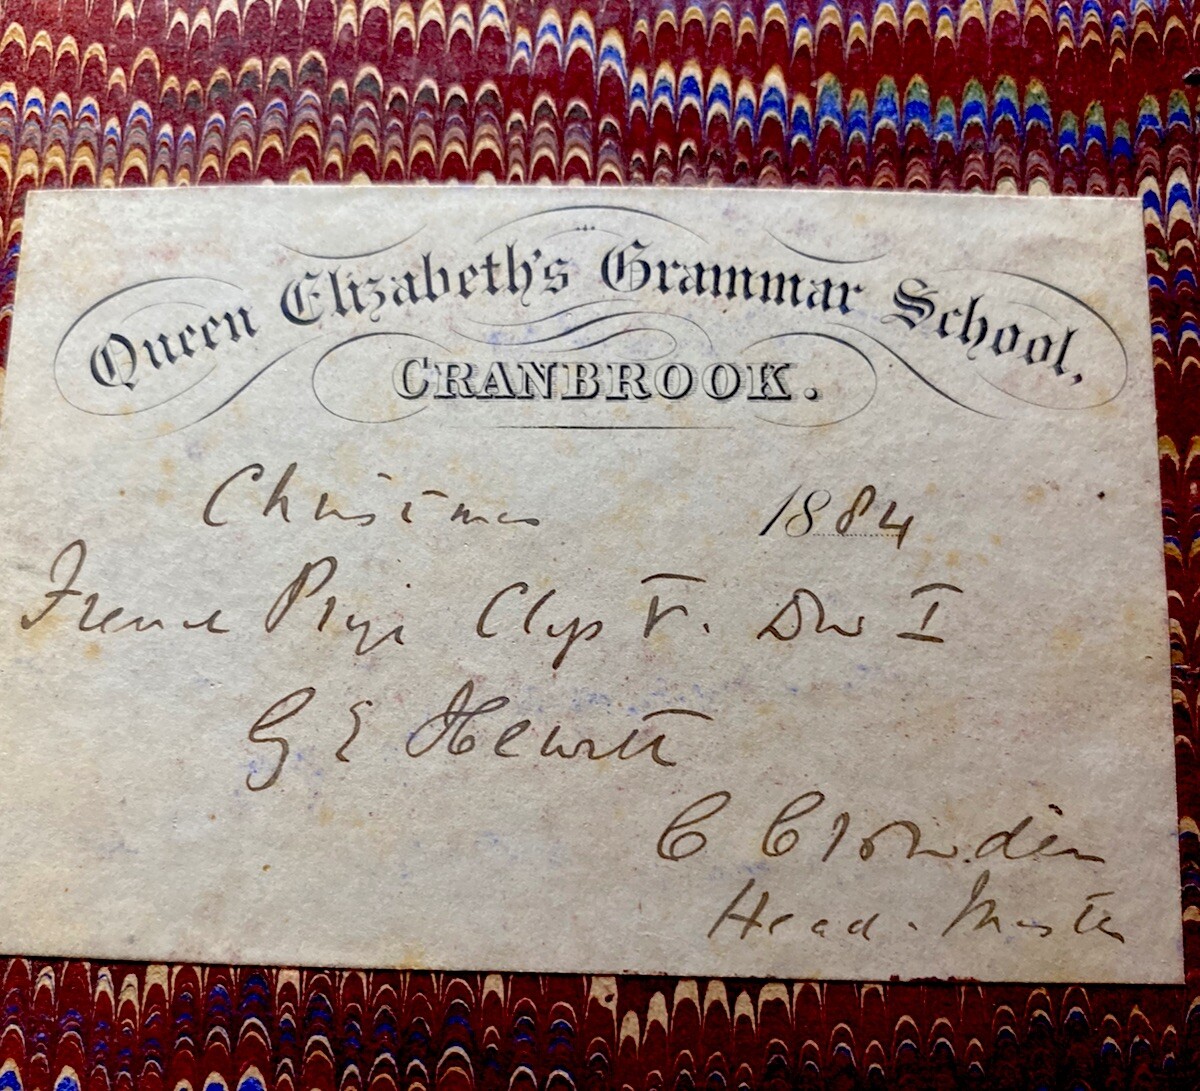 Queen Elizabeth's Grammar School,
CRANBROOK.
Christmas 1884
French Prize Class V. Div I
G E Hewitt
C Crowden
Head. Master